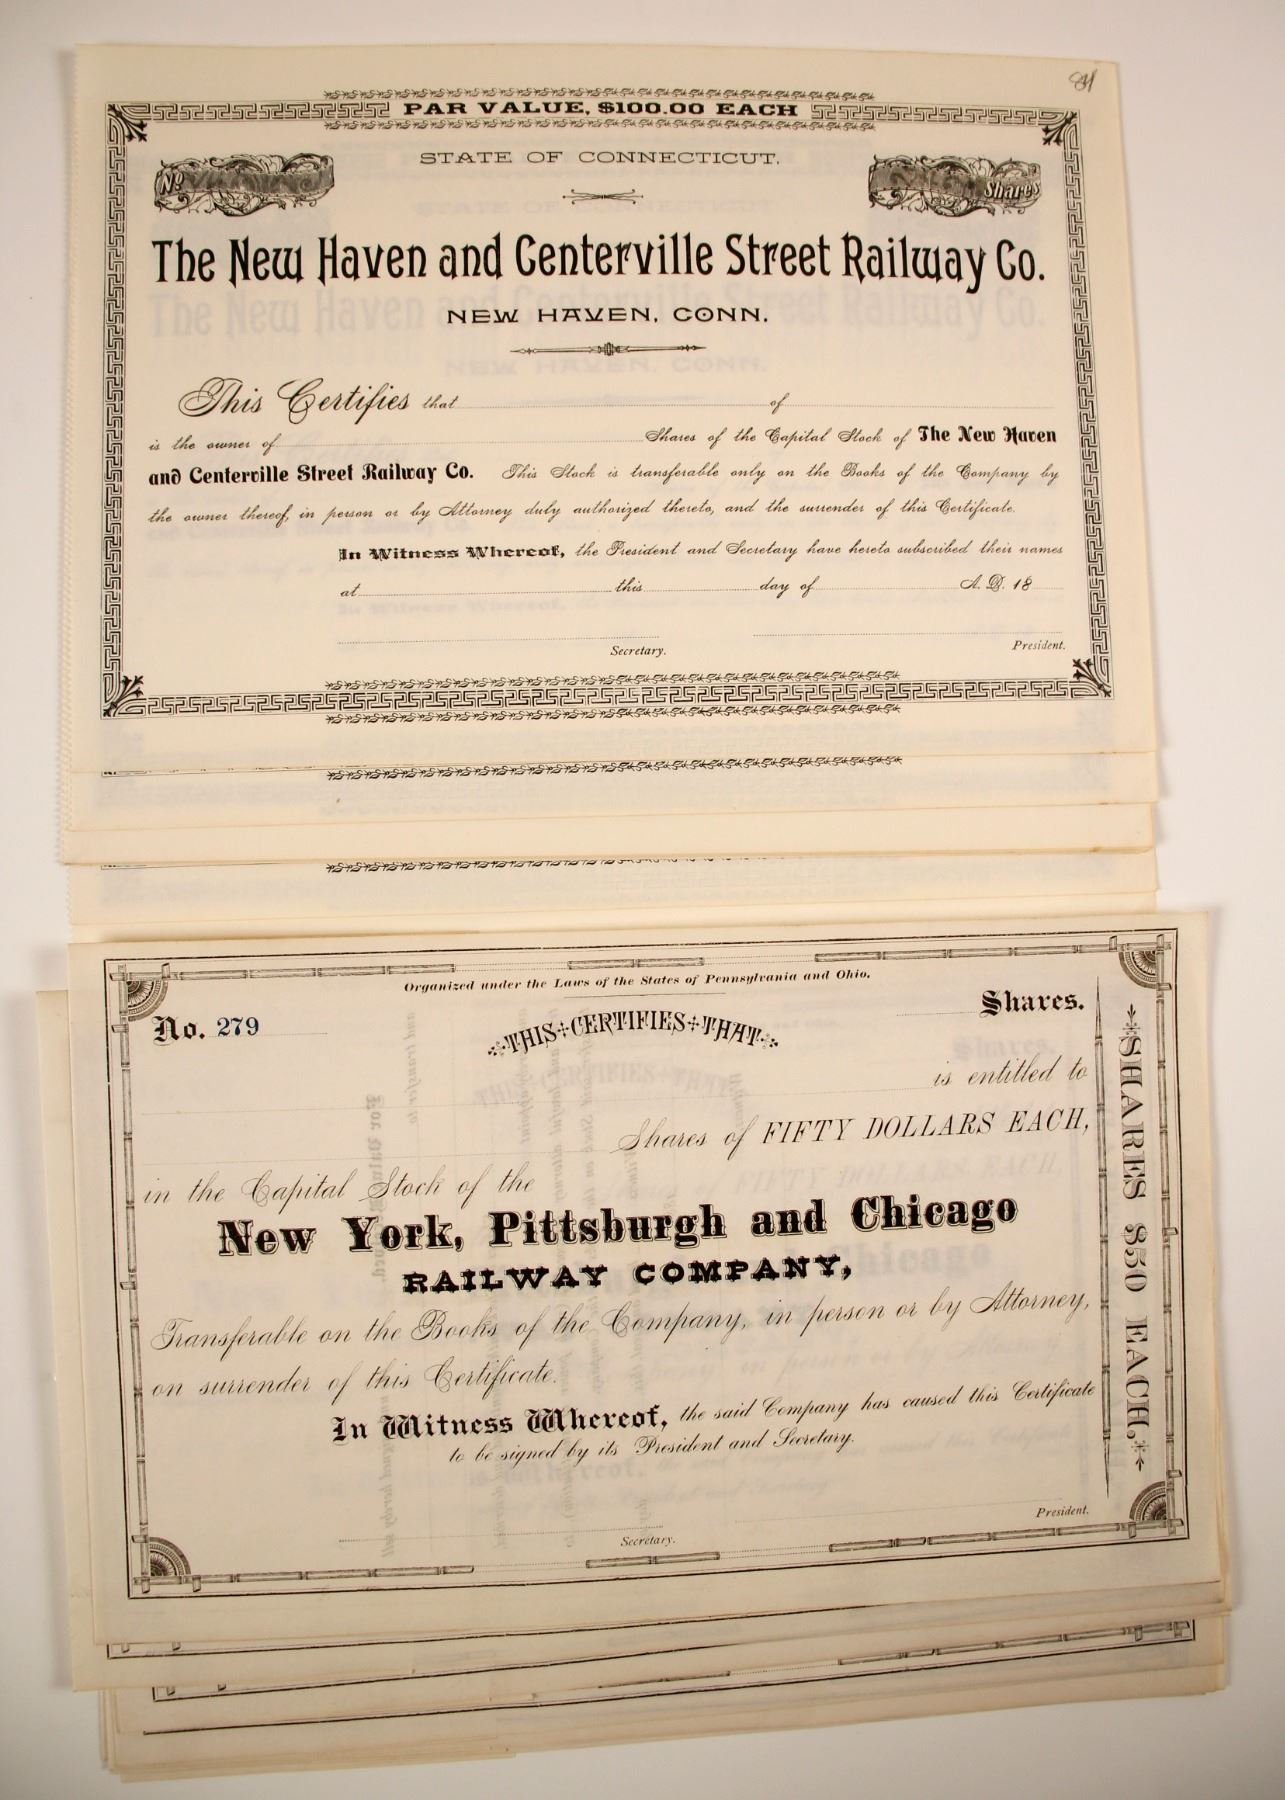 PAR VALUE, $100.00 EACH
STATE OF CONNECTICUT.
No
Shares
The New Haven and Centerville Street Railway Co.
NEW HAVEN, CONN.
This Certifies that of
is the owner of Shares of the Capital Stock of The New Haven
and Centerville Street Railway Co. This Stock is transferable only on the Books of the Company by
the owner thereof, in person or by Attorney duly authorized thereto, and the surrender of this Certificate.
In Witness Whereof, the President and Secretary have hereto subscribed their names
at this day of A. D. 18
Secretary. President.
Organized under the Laws of the States of Pennsylvania and Ohio.
No. 279
Shares.
THIS CERTIFIES THAT
is entitled to
Shares of FIFTY DOLLARS EACH,
in the Capital Stock of the
New York, Pittsburgh and Chicago
RAILWAY COMPANY,
Transferable on the Books of the Company, in person or by Attorney,
on surrender of this Certificate.
In Witness Whereof, the said Company has caused this Certificate
to be signed by its President and Secretary.
Secretary. President.
SHARES $50 EACH,